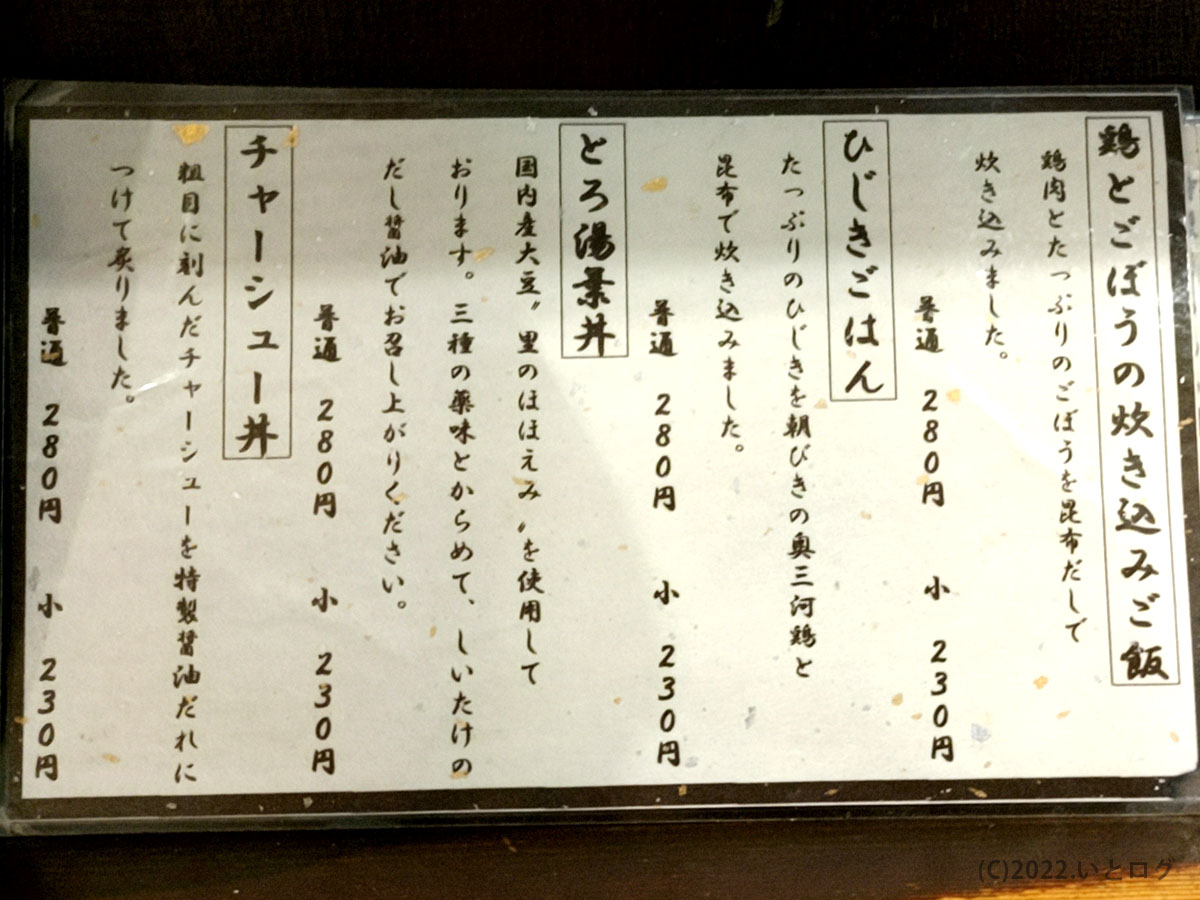 鶏とごぼうの炊き込みご飯
鶏肉とたっぷりのごぼうを昆布だしで
炊き込みました。
普通 280円 小 230円
ひじきごはん
たっぷりのひじきを朝びきの奥三河鶏と
昆布で炊き込みました。
普通 280円 小 230円
とろ湯葉丼
国内産大豆〝里のほほえみ〟を使用して
おります。三種の薬味とからめて、しいたけの
だし醤油でお召し上がりください。
普通 280円 小 230円
チャーシュー丼
粗目に刻んだチャーシューを特製醤油だれに
つけて炙りました。
普通 280円 小 230円
(C)2022.いとログ